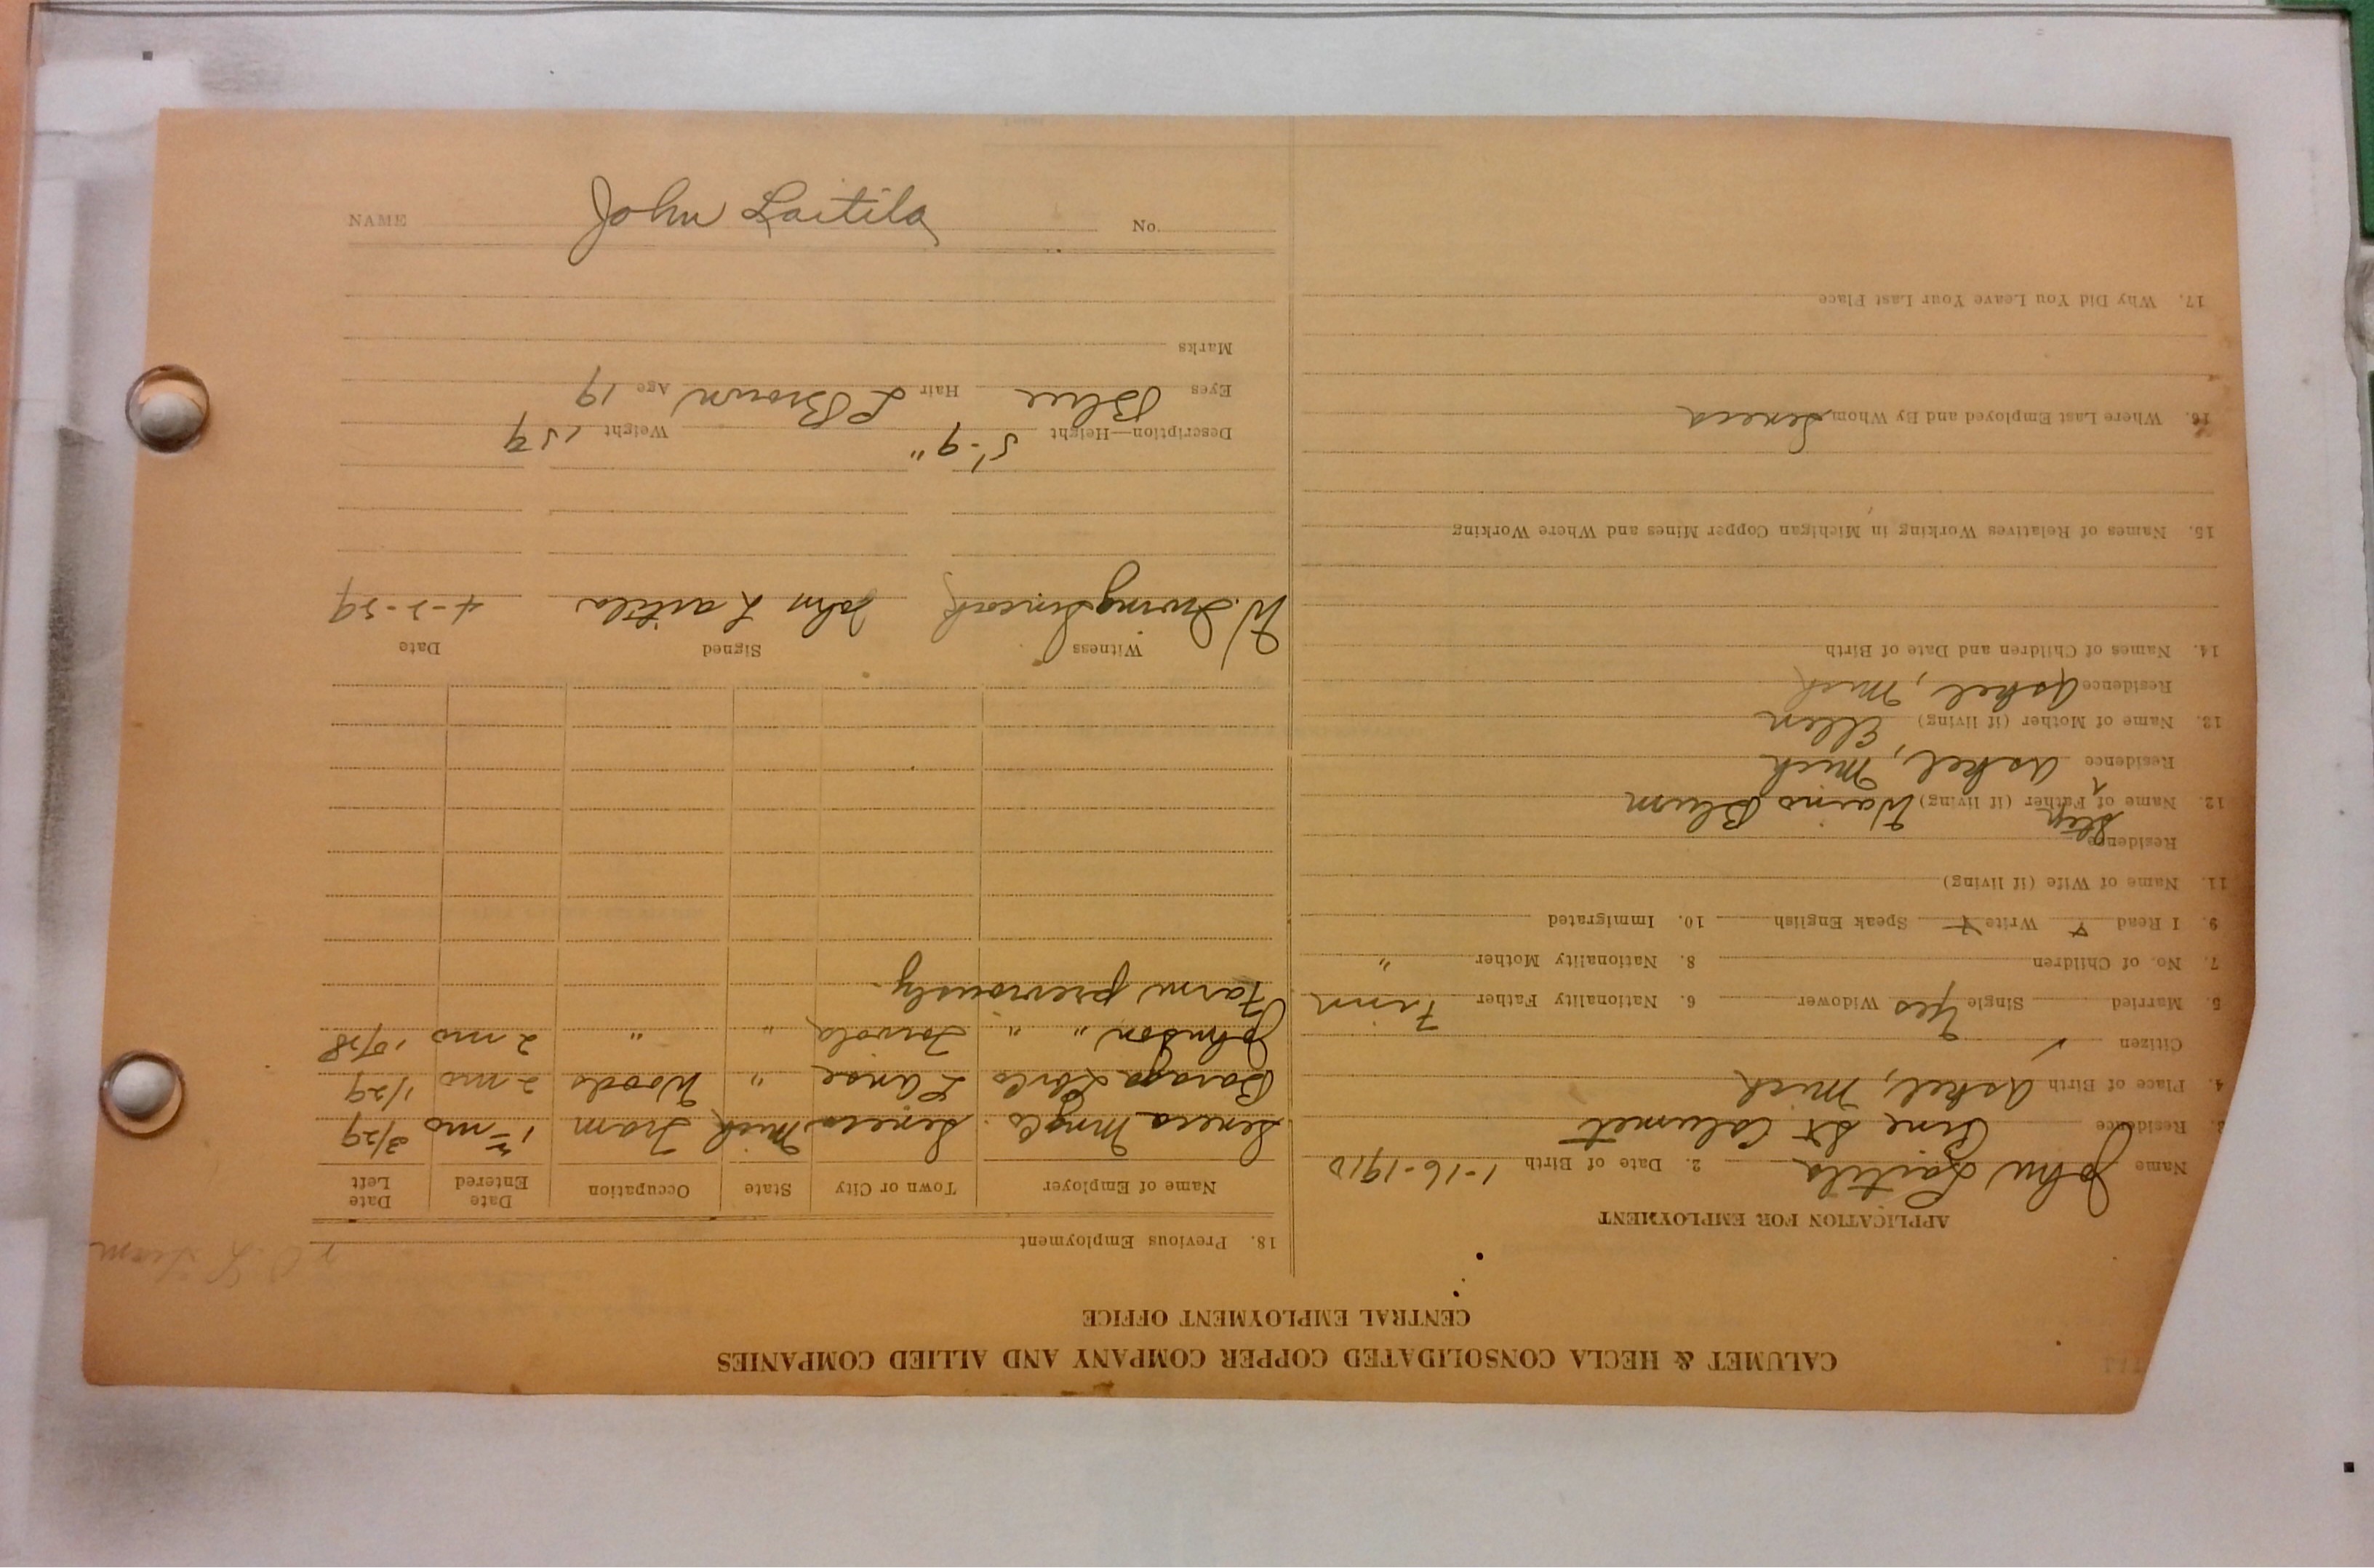 CALUMET & HECLA CONSOLIDATED COPPER COMPANY AND ALLIED COMPANIES
CENTRAL EMPLOYMENT OFFICE
APPLICATION FOR EMPLOYMENT
Name John Laitila 2. Date of Birth 1-16-1910
3. Residence Pine St Calumet
4. Place of Birth Askel, Mich
Citizen ✓
5. Married Single Yes Widower 6. Nationality Father Finn
7. No. of Children 8. Nationality Mother "
9. I Read Write Speak English 10. Immigrated
11. Name of Wife (if living)
Residence
12. Name of Step Father (if living) Waino Blum
Residence Askel, Mich
13. Name of Mother (if living) Ellen
Residence Askel, Mich
14. Names of Children and Date of Birth
15. Names of Relatives Working in Michigan Copper Mines and Where Working
16. Where Last Employed and By Whom Seneca
17. Why Did You Leave Your Last Place
18. Previous Employment
Name of Employer Town or City State Occupation Date Entered Date Left
Seneca Mng Co. Seneca Mich Tram 1 mo 3/29
Baraga L'anse " Woods 2 mo 1/29
Johnson " " Toivola " " 2 mo
Farm previously
Witness Signed Date
W. Irving John Laitila
Description—Height 5'-9" Weight
Eyes Blue Hair L Brown Age 19
Marks
NAME John Laitila No.